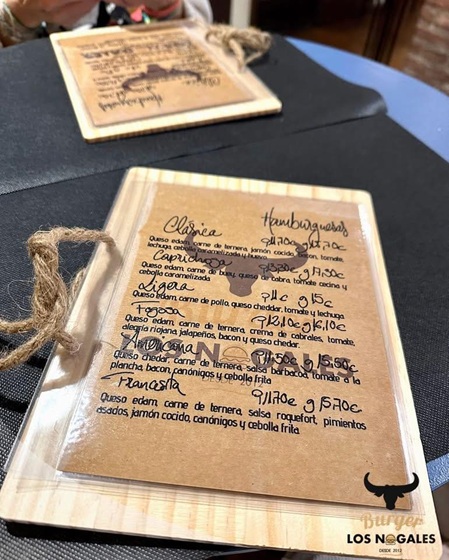 Hamburguesas
Clásica
Queso edam, carne de ternera, jamón cocido, bacon, tomate,
lechuga, cebolla caramelizada y huevo
Caprichosa
Queso edam, carne de buey, queso de cabra, tomate cecina y
cebolla caramelizada
Ligera p11€ g15€
Queso edam, carne de pollo, queso cheddar, tomate y lechuga
Fogosa p12,10€ g16,10€
Queso edam, carne de ternera, crema de cabrales, tomate,
alegría riojana, jalapeños, bacon y queso cheddar.
Americana p11,50€ g15,50€
Queso chedar, carne de ternera, salsa barbacoa, Tomate a la
plancha, bacon, canónigos y cebolla frita
Francesita p11,70€ g15,70€
Queso edam, carne de ternera, salsa roquefort, pimientos
asados, jamón cocido, canónigos y cebolla frita.
LOS NOGALES
Burger
LOS NOGALES
DESDE 2012